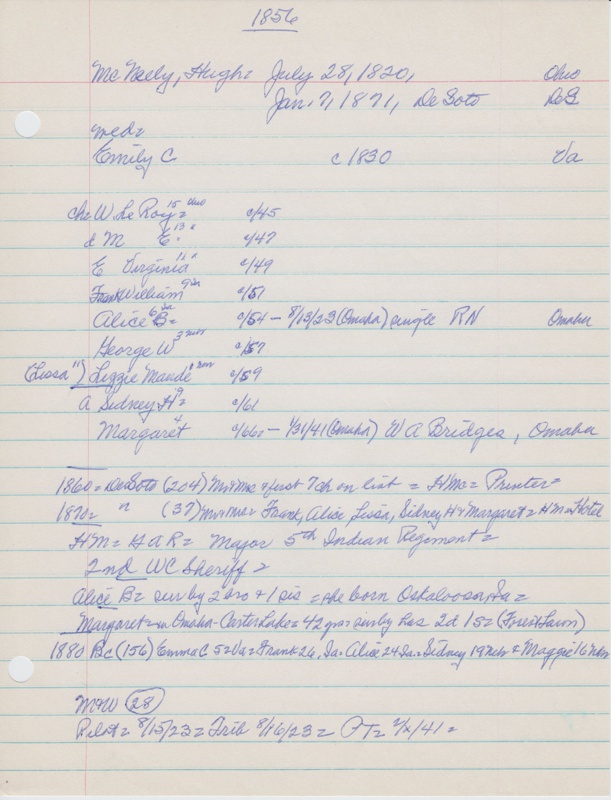 1856
McNeely, Hugh= July 28, 1820, Ohio
Jan. 7, 1871, DeSoto DeS
med=
Emily C c 1830 Va
ch= W LeRoy= 15 Ohio c/45
d M E. 13 " c/47
E Virginia 11 " c/49
Frank William 9 Ia c/51
Alice B= 6 Ia c/54 - 8/13/23 (Omaha) single RN Omaha
George W 3 Nebr c/57
(Lissa") Lizzie Maude c/59
A Sidney H= 9 c/61
Margaret 4 c/66= - 1/31/41 (Omaha) W A Bridges, Omaha
1860= DeSoto (204) Mr+Mrs + first 7 ch on list = HMc= Printer=
1870= " (37) Mr+Mrs= Frank, Alice, Lissa, Sidney H+Margaret= HM= Hotel
HM= GAR= Major 5th Indian Regiment=
2nd WC Sheriff=
Alice B= sur by 2 bro + 1 sis = she born Oskaloosa, Ia=
Margaret= in Omaha-Carter Lake= 42 yrs= sur by hus 2d 1s= (Forest Lawn)
1880 BC (156) Emma C 52 Va= Frank 26, Ia= Alice 24 Ia= Sidney 19 Nebr + Maggie 16 Nebr
M+W (28)
Pilot= 8/15/23= Trib 8/16/23= PT= 2/x/41=